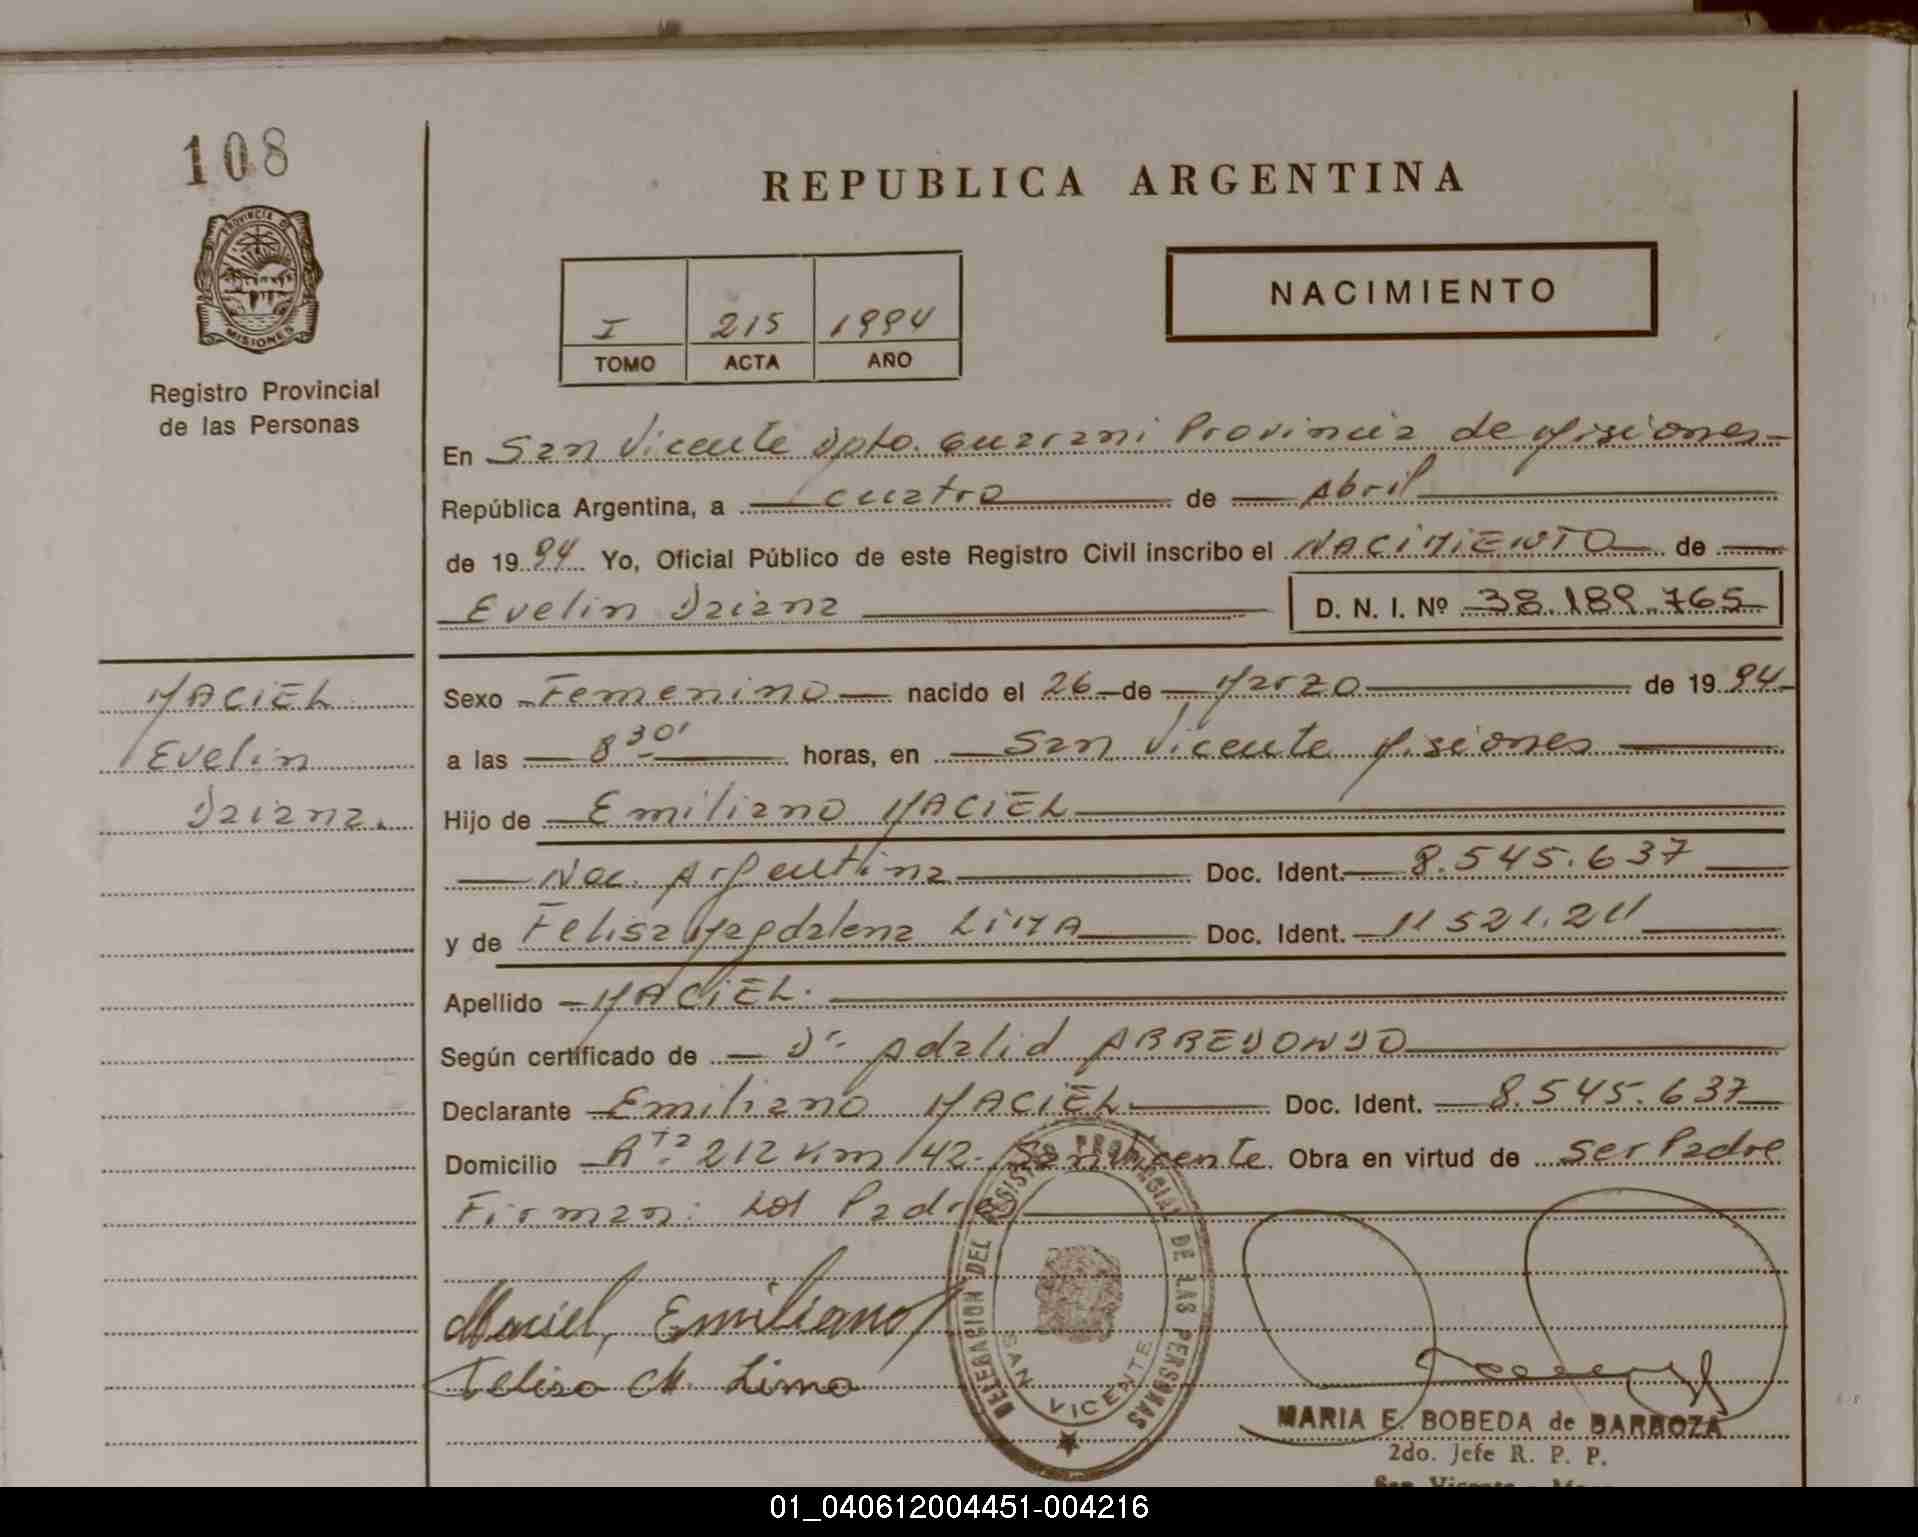 108
PROVINCIA DE
MISIONES
Registro Provincial
de las Personas
REPUBLICA ARGENTINA
NACIMIENTO
I 215 1994
TOMO ACTA AÑO
En San Vicente Dpto. Guarani Provincia de Misiones
República Argentina, a cuatro de Abril
de 1994 Yo, Oficial Público de este Registro Civil inscribo el NACIMIENTO de
Evelin Daiana D. N. I. Nº 38.189.765
MACIEL
Evelin
Daiana.
Sexo Femenino nacido el 26 de Marzo de 1994
a las 8 30' horas, en San Vicente Misiones
Hijo de Emiliano MACIEL
Nac. Argentina Doc. Ident. 8.545.637
y de Felisa Magdalena LIMA Doc. Ident. 11 521.211
Apellido MACIEL.
Según certificado de Dr. Adalid ARREDONDO
Declarante Emiliano MACIEL Doc. Ident. 8.545.637
Domicilio Rta. 212 Km 142. San Vicente. Obra en virtud de ser Padre
Firman: los Padres
Maciel, Emiliano
Felisa M. Lima
DELEGACION DEL REGISTRO PROVINCIAL DE LAS PERSONAS
SAN VICENTE
MARIA E. BOBEDA de BARBOZA
2do. Jefe R. P. P.
San Vicente - Mnes.
01_040612004451-004216